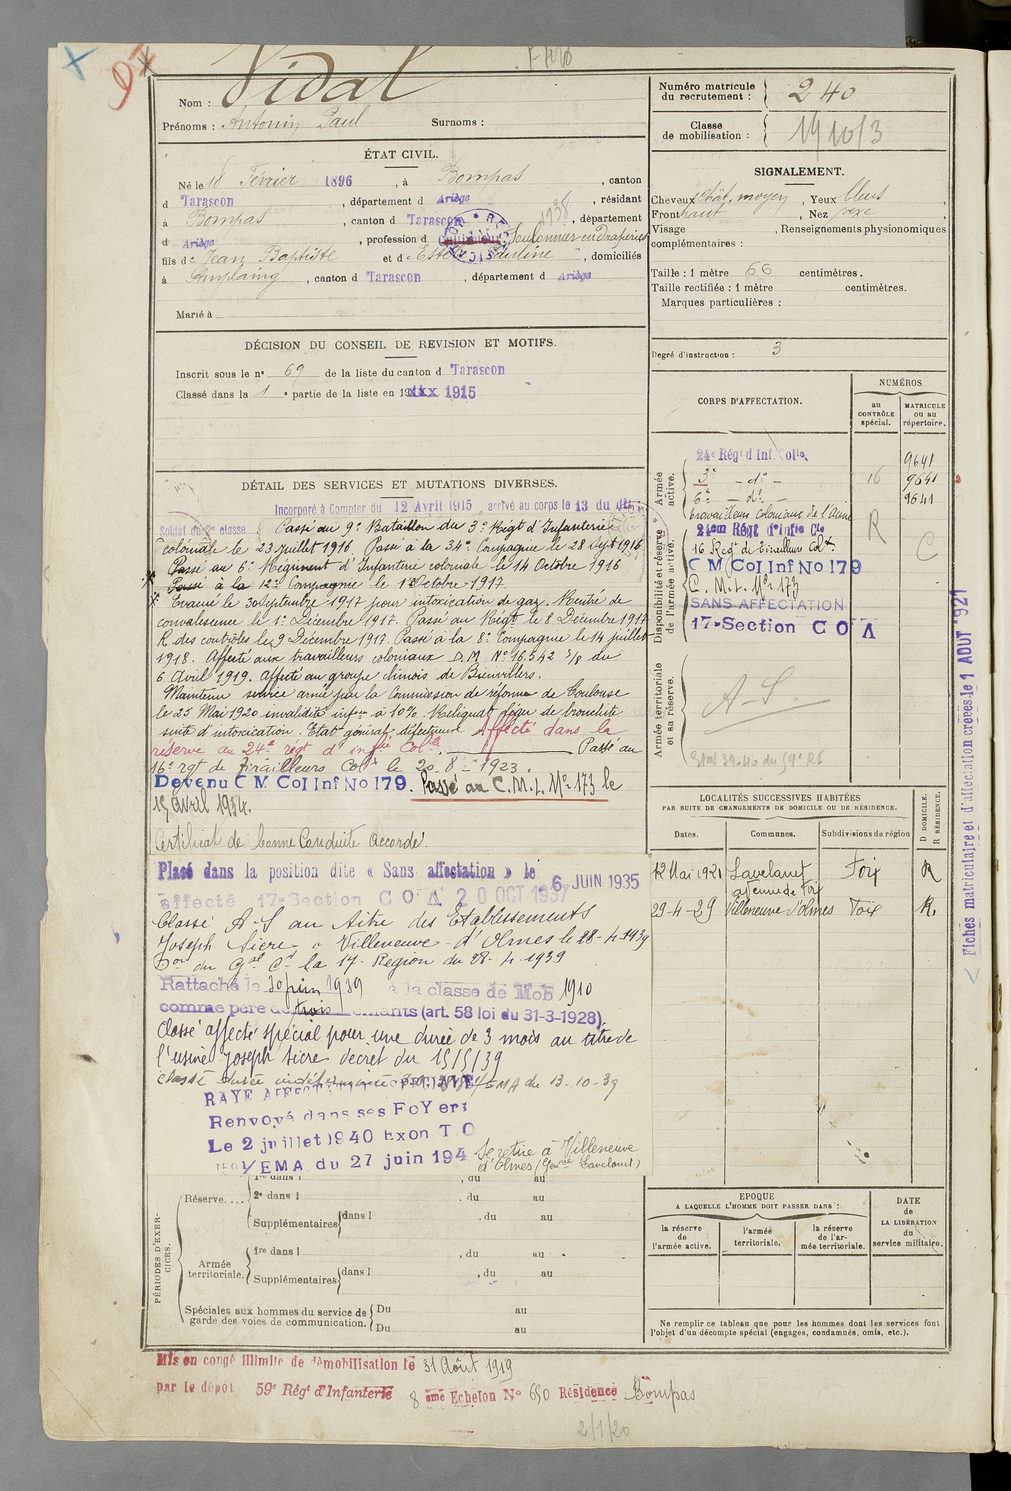 Vidal
Nom :
Prénoms : Antonin Paul Surnoms :
Numéro matricule du recrutement : 240
Classe de mobilisation : 1910/3
ÉTAT CIVIL.
Né le 18 Février 1896, à Bompas, canton
d Tarascon, département d Ariège, résidant
à Bompas, canton d Tarascon, département
d Ariège, profession d Foulonnier en Draperies
1938
fils de Jean Baptiste et de Pauline, domiciliés
à Amplaing, canton d Tarascon, département d Ariège
Marié à
SIGNALEMENT.
Cheveux chât. moyen, Yeux bleus,
Front haut, Nez
Visage, Renseignements physionomiques
complémentaires :
Taille : 1 mètre 66 centimètres.
Taille rectifiée : 1 mètre centimètres.
Marques particulières :
Degré d'instruction : 3
DÉCISION DU CONSEIL DE REVISION ET MOTIFS.
Inscrit sous le n° 69 de la liste du canton d Tarascon
Classé dans la 1 e partie de la liste en 19xxx 1915
DÉTAIL DES SERVICES ET MUTATIONS DIVERSES.
Incorporé à Compter du 12 Avril 1915 arrivé au corps le 13 du dit
Soldat de 2e classe Passé au 9e Bataillon du 3e Régt d'Infanterie
coloniale le 23 Juillet 1916. Passé à la 34e Compagnie le 28 Sept 1916
Passé au 6e Régiment d'Infanterie coloniale le 14 Octobre 1916
Passé à la 12e Compagnie le 1er Octobre 1917
Evacué le 30 Septembre 1917 pour intoxication de gaz. Rentré de
convalescence le 1er Décembre 1917. Passé au Régt le 8 Décembre 1917
R des contrôles le 9 Décembre 1917. Passé à la 8e Compagnie le 14 juillet
1918. Affecté aux travailleurs coloniaux D.M. No 16.542 5/8 du
6 Avril 1919. Affecté au groupe chinois de Bienvillers.
Maintenu service armé par la Commission de réforme de Toulouse
le 25 Mai 1920 invalidité infre à 10%. Reliquat léger de bronchite
suite d'intoxication. Etat général défectueux Affecté dans la
réserve au 24e régt d'infie Colle. Passé au
16e rgt de Tirailleurs Colx le 20-8-1923.
Devenu C M Col Inf No 179. Passé au C.M.I. No 173 le
15 avril 1934.
Certificat de bonne Conduite accordé.
Placé dans la position dite « Sans affectation » le 6 JUIN 1935
affecté 17e Section C O A 20 OCT 1937
Classé A-S au titre des Etablissements
Joseph Sicre à Villeneuve-d'Olmes le 28-4-1939
Don du Gal Ct la 17e Region du 28-4-1939
Rattaché le 30 juin 1939 à la classe de Mob 1910
comme père de trois enfants (art. 58 loi du 31-3-1928).
Classé affecté spécial pour une durée de 3 mois au titre de
l'usine Joseph Sicre décret du 15/5/39
Classé durée indéterminée EMA du 13-10-39
RAYE AFFECTATION SPECIALE
Renvoyé dans ses Foyers
Le 2 juillet 1940 Exon T O
/EMA du 27 juin 194
Se retire à Villeneuve
d'Olmes (Gerie Lavelanet)
CORPS D'AFFECTATION.
NUMÉROS
au CONTRÔLE spécial.
MATRICULE ou au répertoire.
Armée active.
24e Régt d'Inf Colle. 9641
3e -do- 16 9641
6e -do- 9641
travailleurs coloniaux de l'Aisne
Disponibilité et réserve de l'armée active.
24em Régt d'Infie Cle R
16 Regt de Tirailleurs Colx. C
C M Col Inf No 179
C. M. I. No 173
SANS AFFECTATION
17e Section C O A
Armée territoriale et sa réserve.
A-S
LOCALITÉS SUCCESSIVES HABITÉES
PAR SUITE DE CHANGEMENTS DE DOMICILE OU DE RÉSIDENCE.
Dates. Communes. Subdivisions de région D DOMICILE. R RÉSIDENCE.
12 Mai 1921 Lavelanet Foix R
avenue de Foix
29-4-29 Villeneuve d'Olmes Foix R.
Fiches matriculaire et d'affectation créées le 1 AOUT 1921
PÉRIODES D'EXERCICES.
Réserve....
1re dans l, du au
2e dans l, du au
Supplémentaires dans l, du au
Armée territoriale.
1re dans l, du au
Supplémentaires dans l, du au
Spéciales aux hommes du service de garde des voies de communication.
Du au
Du au
EPOQUE
A LAQUELLE L'HOMME DOIT PASSER DANS :
la réserve de l'armée active.
l'armée territoriale.
la réserve de l'armée territoriale.
DATE de LA LIBÉRATION du service militaire.
Ne remplir ce tableau que pour les hommes dont les services font
l'objet d'un décompte spécial (engagés, condamnés, omis, etc.).
Mis en congé illimité de démobilisation le 31 Août 1919
par le dépot 59e Régt d'Infanterie 8 ème Echelon No 690 Résidence Bompas
2/1/20